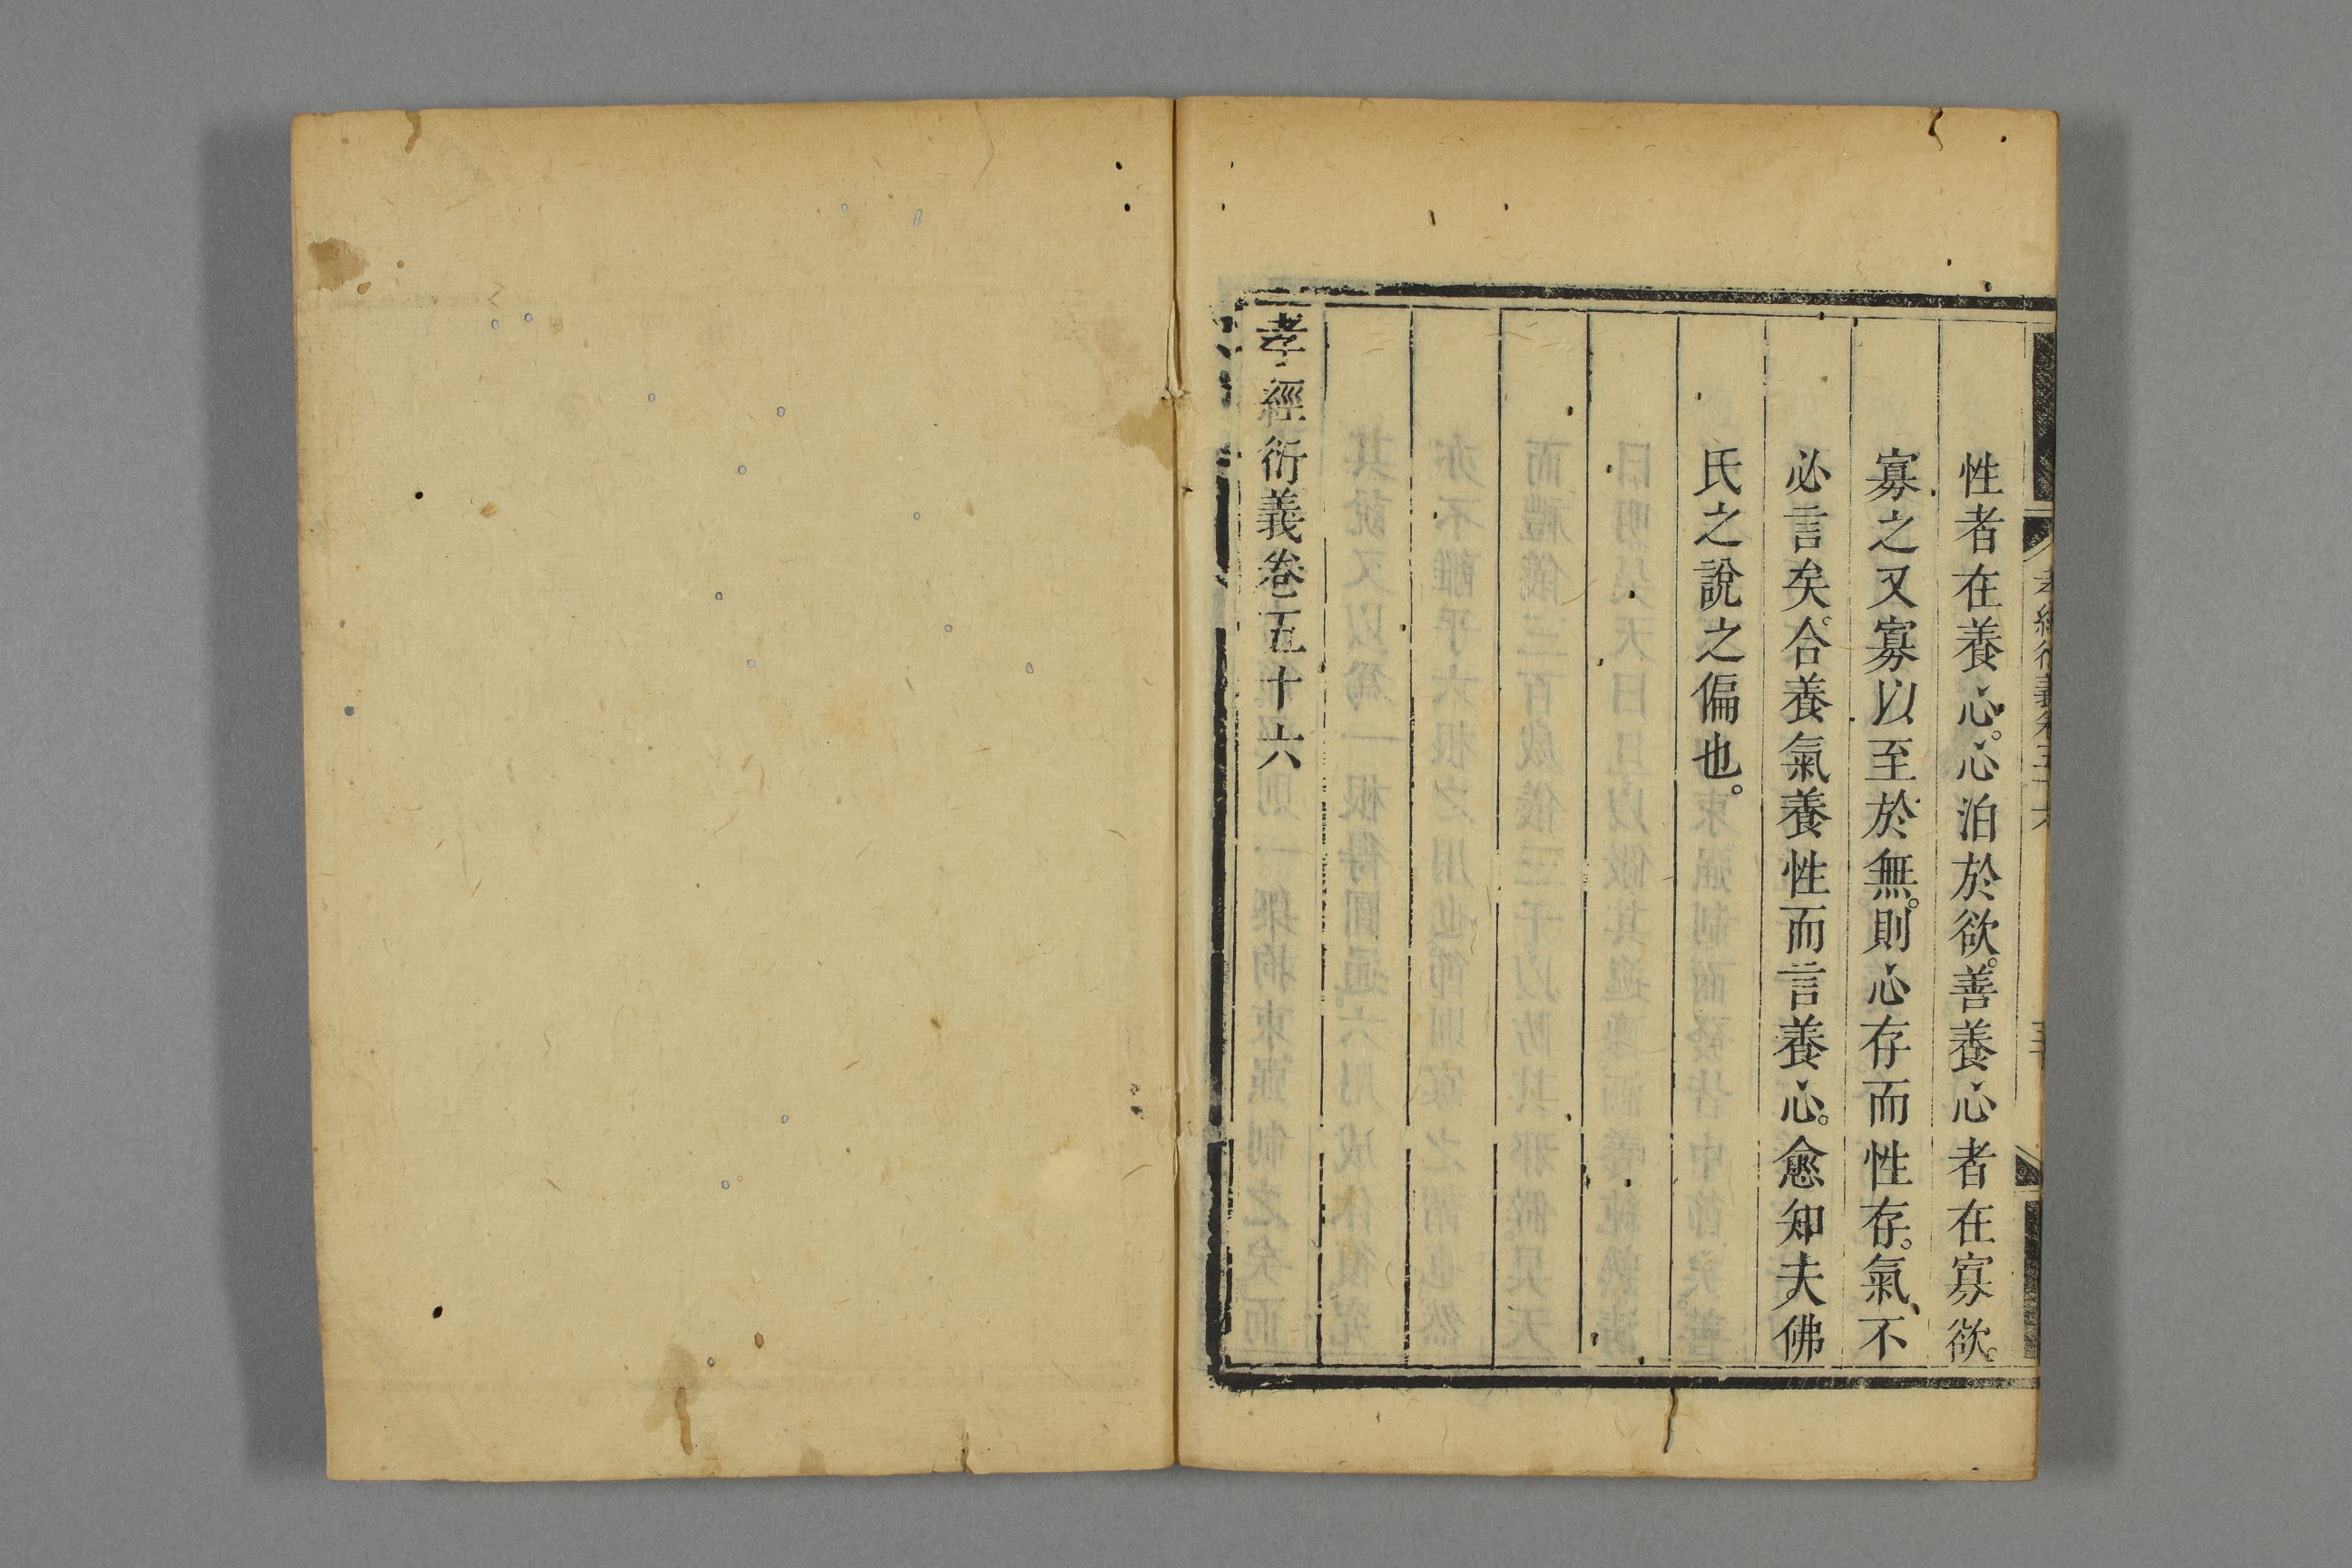 孝經衍義卷五十六
性者在養心。心泊於欲。善養心者在寡欲。
寡之又寡以至於無。則心存而性存。氣不
必言矣。合養氣養性而言養心。愈知夫佛
氏之說之偏也。
孝經衍義卷五十六